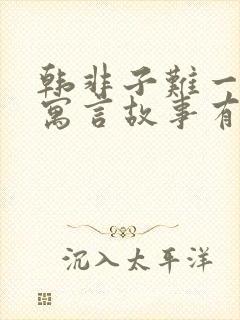 韩非子難一
寓言故事有
沉入太平洋